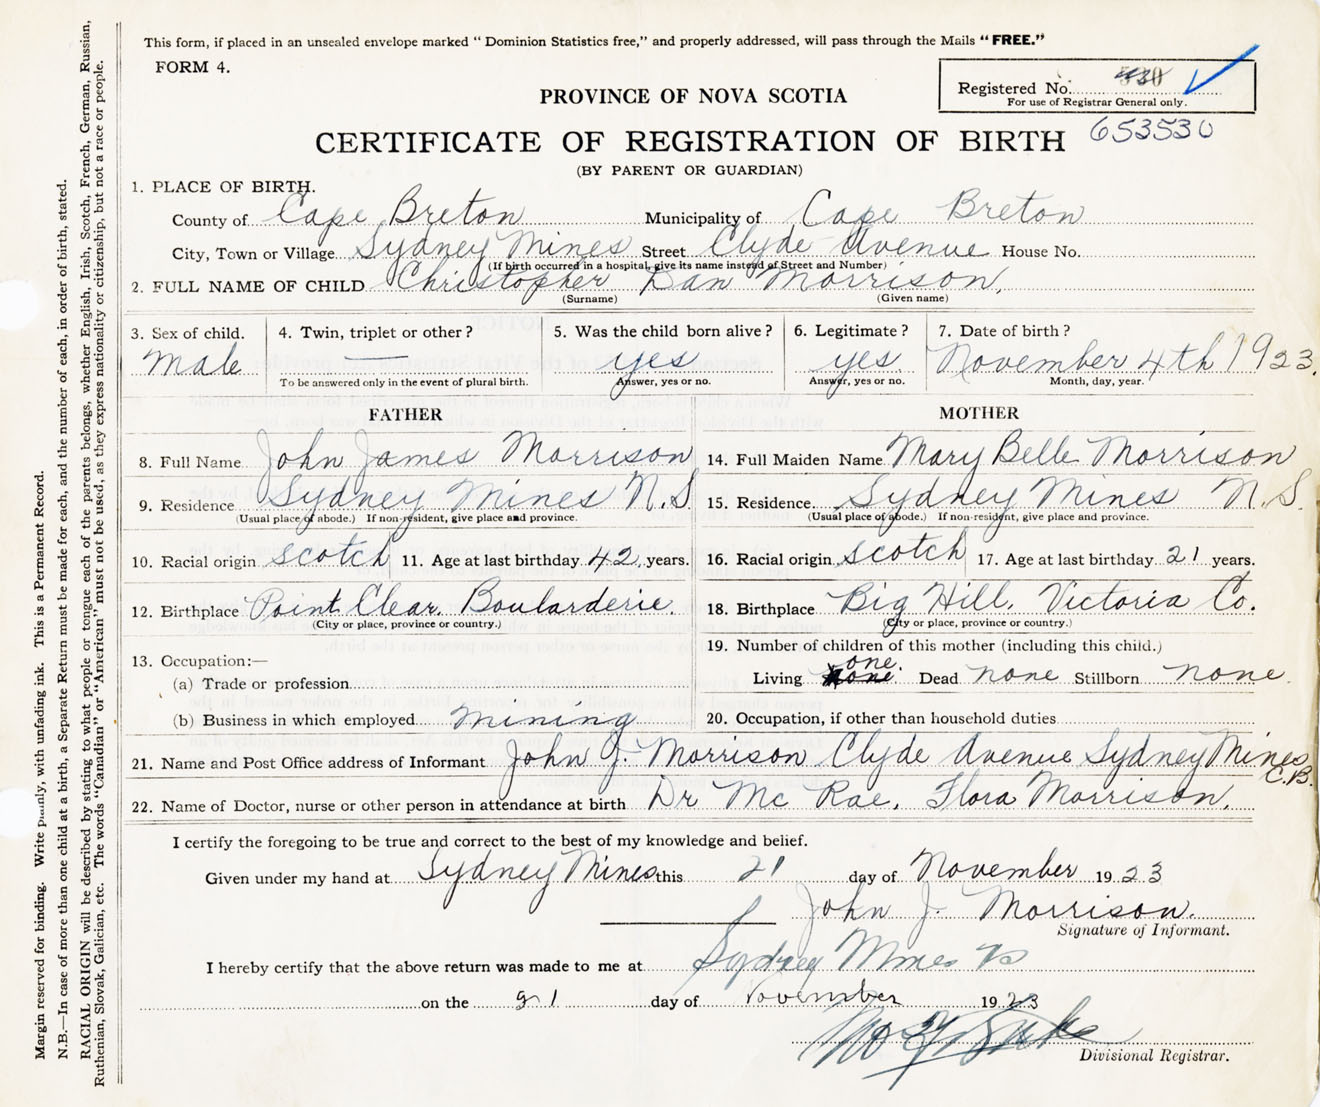 This form, if placed in an unsealed envelope marked "Dominion Statistics free," and properly addressed, will pass through the Mails "FREE."
FORM 4.
Registered No.
For use of Registrar General only.
PROVINCE OF NOVA SCOTIA
653530
CERTIFICATE OF REGISTRATION OF BIRTH
(BY PARENT OR GUARDIAN)
1. PLACE OF BIRTH.
County of Cape Breton Municipality of Cape Breton
City, Town or Village Sydney Mines Street Clyde Avenue House No.
(If birth occurred in a hospital, give its name instead of Street and Number)
2. FULL NAME OF CHILD Christopher Dan Morrison,
(Surname) (Given name)
3. Sex of child. 4. Twin, triplet or other? 5. Was the child born alive? 6. Legitimate? 7. Date of birth?
Male — yes yes November 4th 1923.
To be answered only in the event of plural birth. Answer, yes or no. Answer, yes or no. Month, day, year.
FATHER MOTHER
8. Full Name John James Morrison 14. Full Maiden Name Mary Belle Morrison
9. Residence Sydney Mines N.S 15. Residence Sydney Mines N.S.
(Usual place of abode.) If non-resident, give place and province. (Usual place of abode.) If non-resident, give place and province.
10. Racial origin scotch 11. Age at last birthday 42 years. 16. Racial origin scotch 17. Age at last birthday 21 years.
12. Birthplace Point Clear. Boularderie 18. Birthplace Big Hill, Victoria Co.
(City or place, province or country.) (City or place, province or country.)
19. Number of children of this mother (including this child.)
13. Occupation:—
one.
(a) Trade or profession Living Dead none Stillborn none.
(b) Business in which employed mining 20. Occupation, if other than household duties
21. Name and Post Office address of Informant John J. Morrison Clyde Avenue Sydney Mines C.B.
22. Name of Doctor, nurse or other person in attendance at birth Dr Mc Rae. Flora Morrison.
I certify the foregoing to be true and correct to the best of my knowledge and belief.
Given under my hand at Sydney Mines this 21 day of November 1923
John J. Morrison.
Signature of Informant.
I hereby certify that the above return was made to me at Sydney Mines NS
on the 21 day of November 1923
Divisional Registrar.
Margin reserved for binding. Write plainly, with unfading ink. This is a Permanent Record.
N.B.—In case of more than one child at a birth, a Separate Return must be made for each, and the number of each, in order of birth, stated.
RACIAL ORIGIN will be described by stating to what people or tongue each of the parents belongs, whether English, Irish, Scotch, French, German, Russian,
Ruthenian, Slovak, Galician, etc. The words "Canadian" or "American" must not be used, as they express nationality or citizenship, but not a race or people.